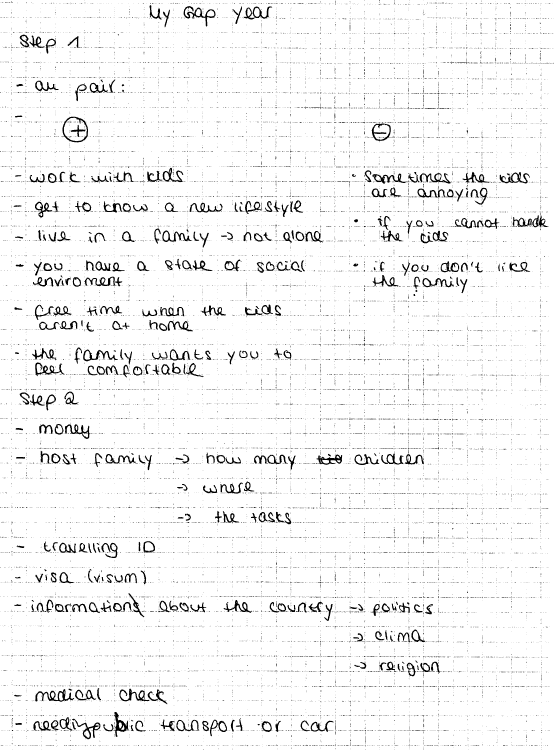 My Gap year
Step 1
- au pair:
-
+ -
- work with kids
- get to know a new lifestyle
- live in a family → not alone
- you have a state of social
enviroment
- free time when the kids
aren't at home
- the family wants you to
feel comfortable
• Sometimes the kids
are annoying
• if you cannot handle
the kids
• if you don't like
the family
Step 2
- money
- host family → how many children
→ where
→ the tasks
- travelling ID
- visa (visum)
- information about the country → politics
→ clima
→ religion
- medical check
- needing public transport or car